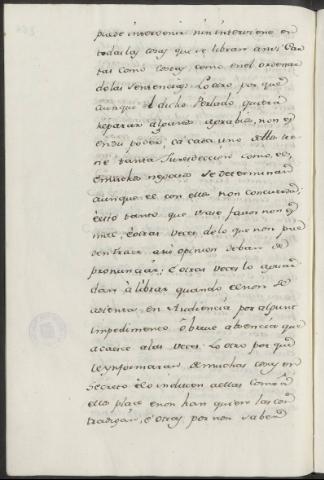 puede intervenir nin interviene en
todas las cosas que se libran ansi Car
tas como cosas, como en el ordenar
de las Sentencias; Lo otro por que
aunque el dicho Perlado quiera
reparar algunos agrabios, non es
en su poder, ca cada uno dellos tie
ne tanta Jurisdeccion como el,
e muchos negocios se determinan
aunque el con ellos non concuerda;
é esto tanto que unas fasen non
mas, é otras veces de lo que non pue
den traer a su opinion dexan de
pronunciar; é otras veces lo aguar
dan à librar quando el non se
asienta, en Audiencia por algunt
impedimento ó breve absencia que
acaesce a las veces. Lo otro por que
le ynformaran de muchas cosas en
Secreto é lo inducen a ellas como à
ellos place e non han quien las con
tradigan, é otros por non saber